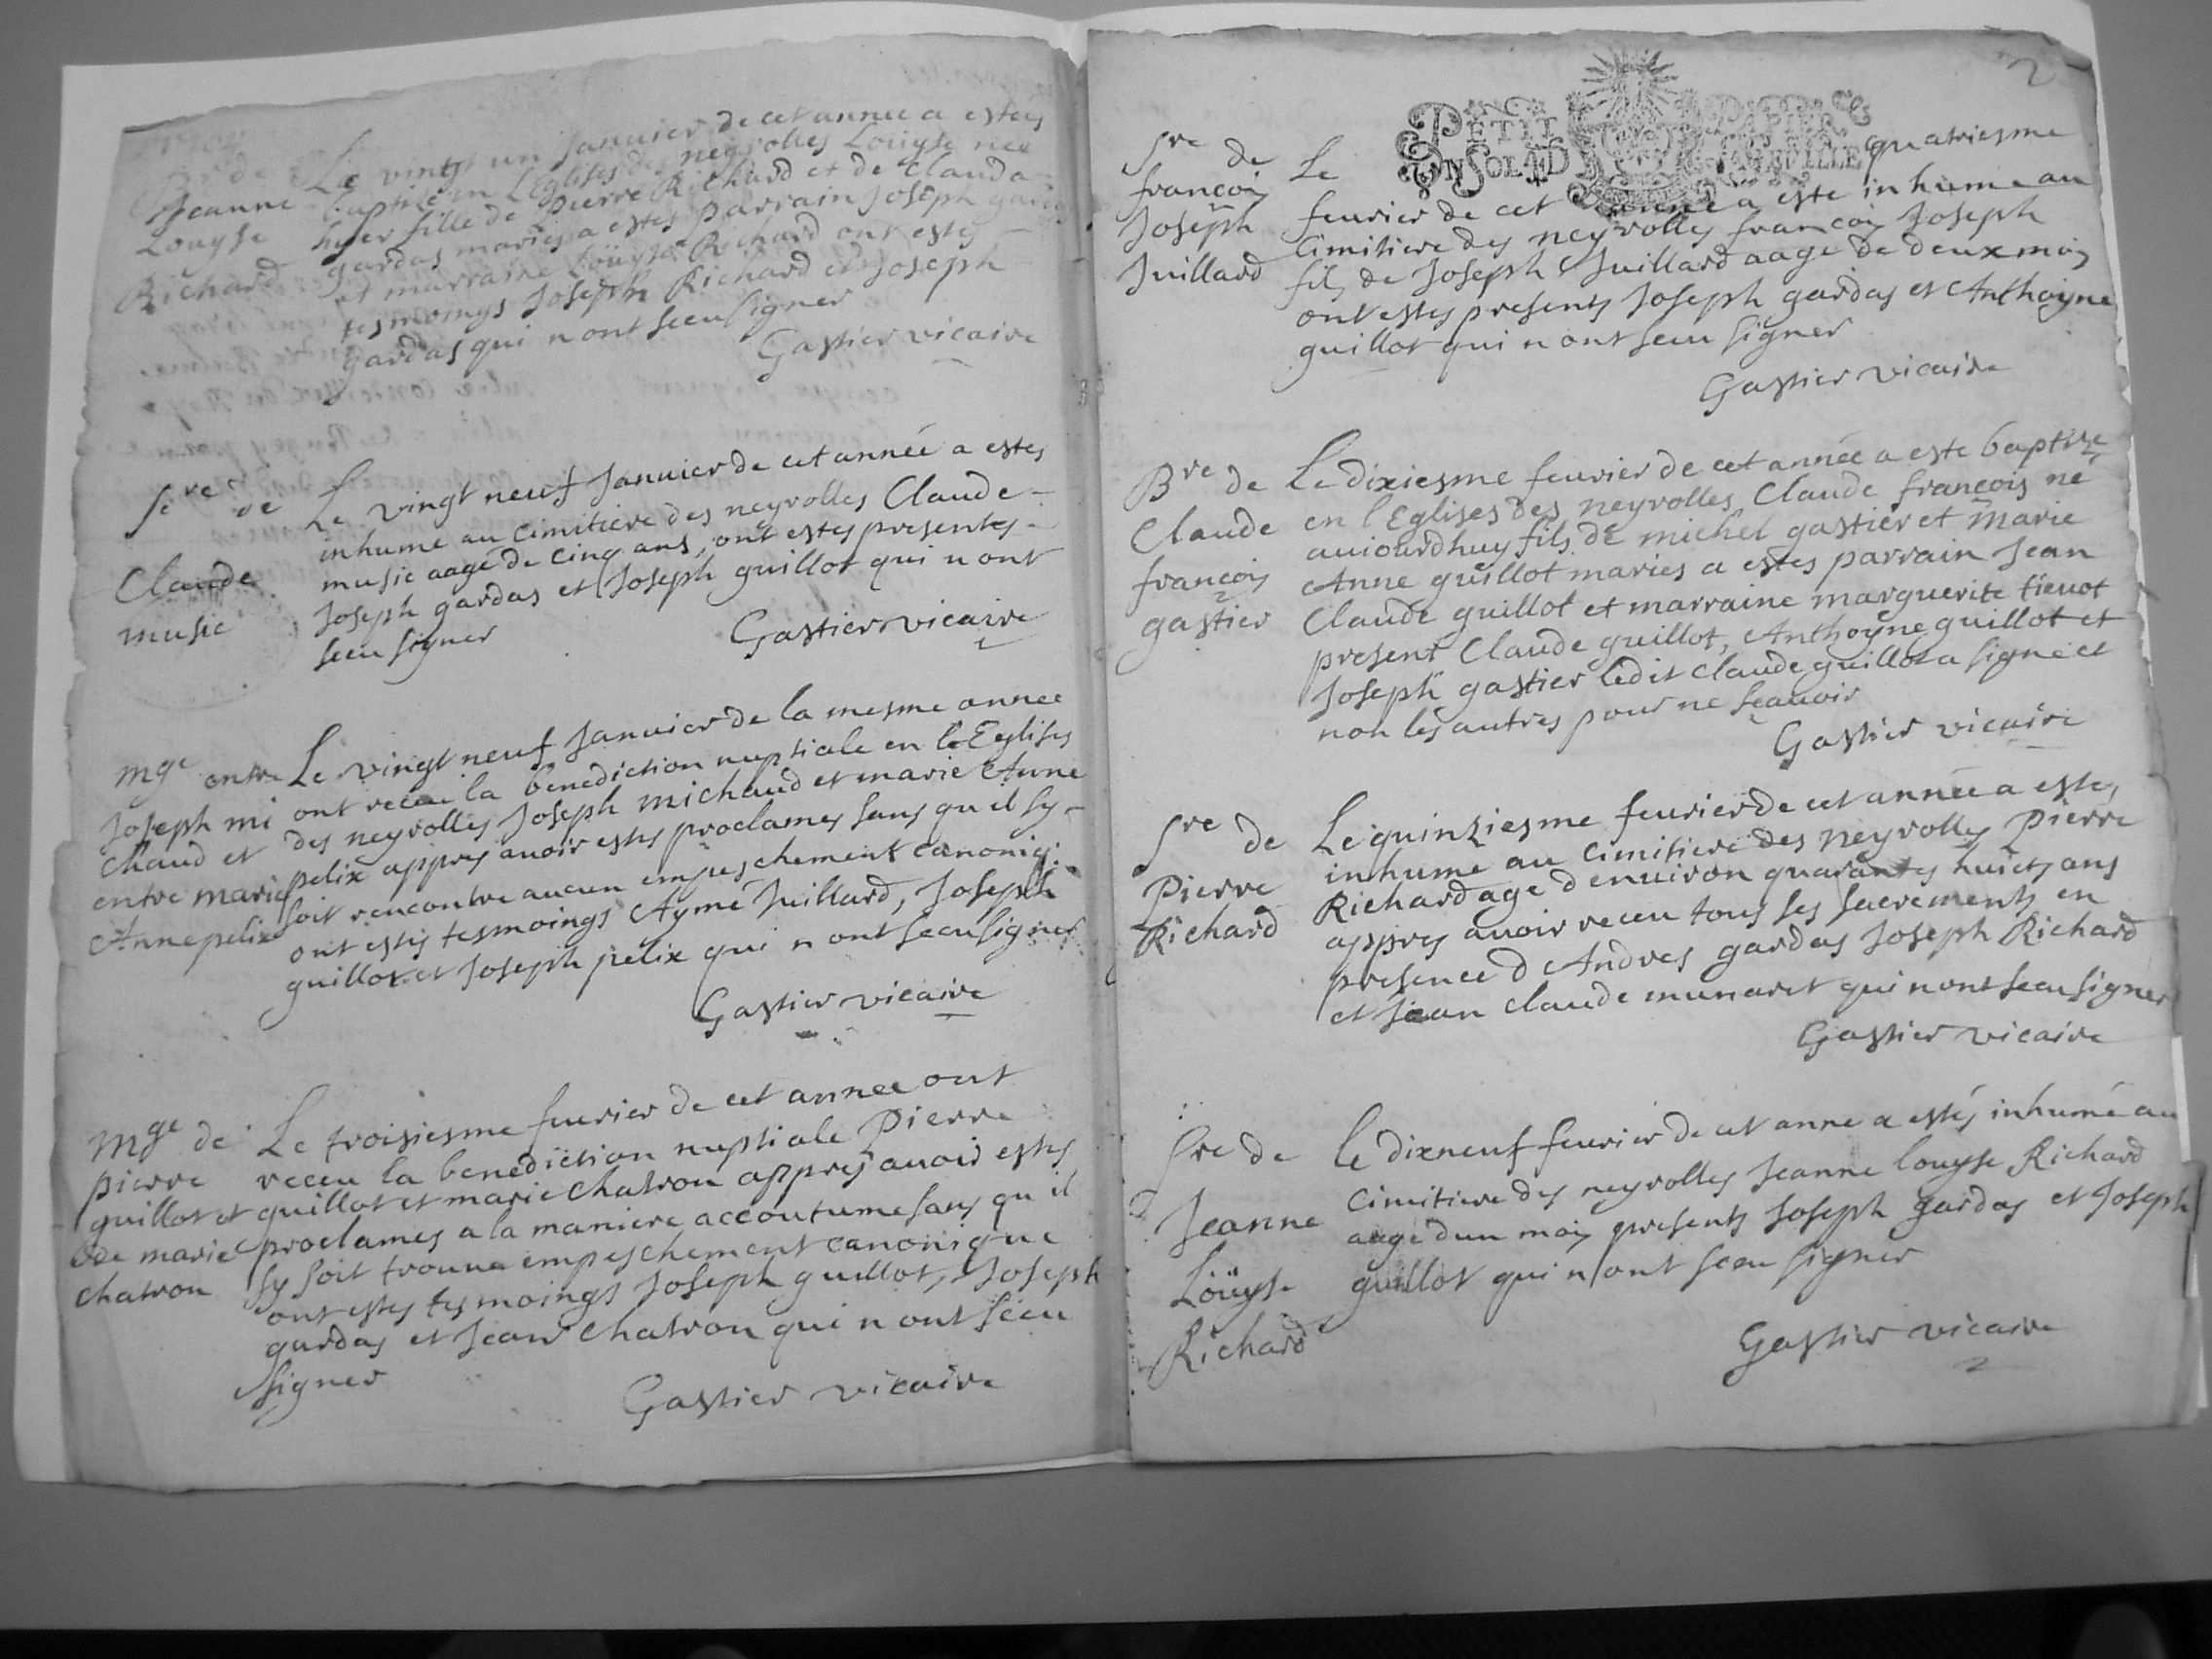 Br de
Jeanne
Louyse
Richard
Le vingt un Januier de cet annee a estes
baptise en l Eglises des neyrolles Louyse nee
hyer fille de pierre Richard et de Clauda
gardas maries a estes parrain Joseph
et marraine Loüyse Richard ont estes
tesmoings Joseph Richard et Joseph
gardas qui n ont sceu signer
Gastier vicaire
Sre de
Claude
music
Le vingt neuf Januier de cet année a estes
inhume au cimitiere des neyrolles Claude
music aagé de cinq ans, ont estes presentes
Joseph gardas et Joseph guillot qui n ont
sceu signer
Gastier vicaire
mge entre
Joseph mi
chaud et
entre marie
Anne pelix
Le vingt neuf Januier de la mesme annee
ont receu la benediction nuptiale en l Eglises
des neyrolles Joseph michaud et marie Anne
pelix appres auoir estes proclames sans qu il sy
soit rencontre aucun empeschement canoniq:
ont estes tesmoings Ayme Juillard, Joseph
guillot et Joseph pelix qui n ont sceu signer
Gastier vicaire
mge de
pierre
guillot et
de marie
chatron
Le troisiesme feurier de cet annee ont
receu la benediction nuptiale Pierre
guillot et marie Chatron appres auoir estes
proclames a la maniere accoutume sans qu il
sy soit trouue empeschement canonique
ont estes tesmoings Joseph guillot, Joseph
gardas et Jean Chatron qui n ont sceu
signer
Gastier vicaire
2
PETIT PAPIER
UN SOL 4 D LA FEUILLE
Sre de
francois
Joseph
Juillard
Le quatriesme
feurier de cet annee a este inhume au
Cimitiere des neyrolles francois Joseph
fils de Joseph Juillard aage de deux mois
ont estes presents Joseph gardas et Anthoyne
guillot qui n ont sceu signer
Gastier vicaire
Bre de
Claude
francois
gastier
Le dixiesme feurier de cet année a este baptize
en l Eglises des neyrolles Claude francois né
auiourdhuy fils de michel gastier et marie
Anne guillot maries a estes parrain Jean
Claude guillot et marraine marguerite tieuot
present Claude guillot, Anthoyne guillot et
Joseph gastier ledit claude guillot a signé et
non les autres pour ne scauoir
Gastier vicaire
Sre de
Pierre
Richard
Le quinziesme feurier de cet année a estes
inhume au cimitiere des neyrolles Pierre
Richard age d enuiron quarantes huicts ans
appres auoir receu tous ses sacrements en
presence d Andres gardas Joseph Richard
et Jean claude munaret qui n ont sceu signer
Gastier vicaire
Sre de
Jeanne
Loüyse
Richard
le dixneuf feurier de cet anne a estés inhumé au
Cimitiere des neyrolles Jeanne louyse Richard
aage dun mois presents Joseph gardas et Joseph
guillot qui n ont sceu signer
Gastier vicaire